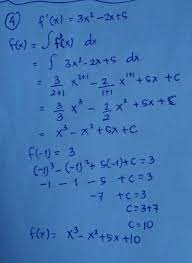 ④ f'(x) = 3x² - 2x + 5
f(x) = ∫ f'(x) dx
= ∫ 3x² - 2x + 5 dx
= 3/(2+1) x²⁺¹ - 2/(1+1) x¹⁺¹ + 5x + C
= 3/3 x³ - 2/2 x² + 5x + C
= x³ - x² + 5x + C
f(-1) = 3
(-1)³ - (-1)² + 5(-1) + C = 3
-1 - 1 - 5 + C = 3
-7 + C = 3
C = 3+7
C = 10
f(x) = x³ - x² + 5x + 10